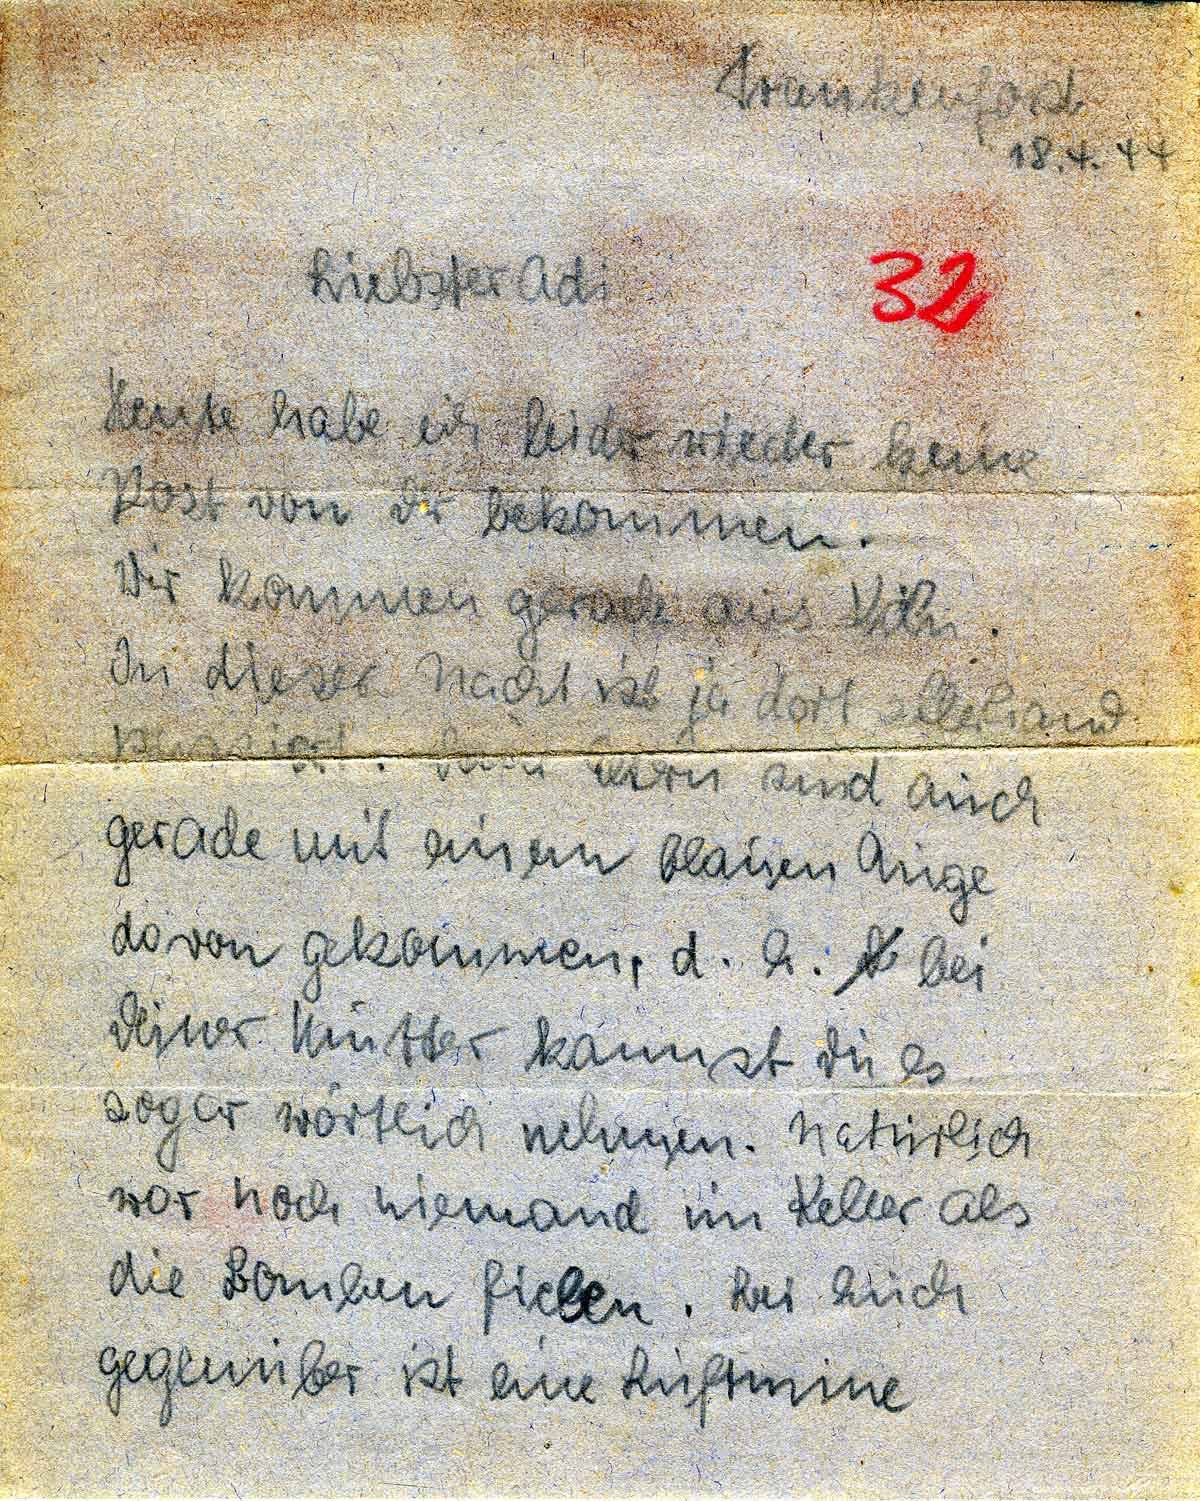 Frankenforst
18.4.44
32
Liebster Adi
Heute habe ich leider wieder keine
Post von Dir bekommen.
Wir kommen gerade aus Köln.
In dieser Nacht ist ja dort allerhand
passiert. Eltern sind auch
gerade mit einem blauen Auge
davon gekommen, d. h. bei
Deiner Mutter kannst Du es
sogar wörtlich nehmen. Natürlich
war noch niemand im Keller als
die Bomben fielen. Bei Euch
gegenüber ist eine Luftmine